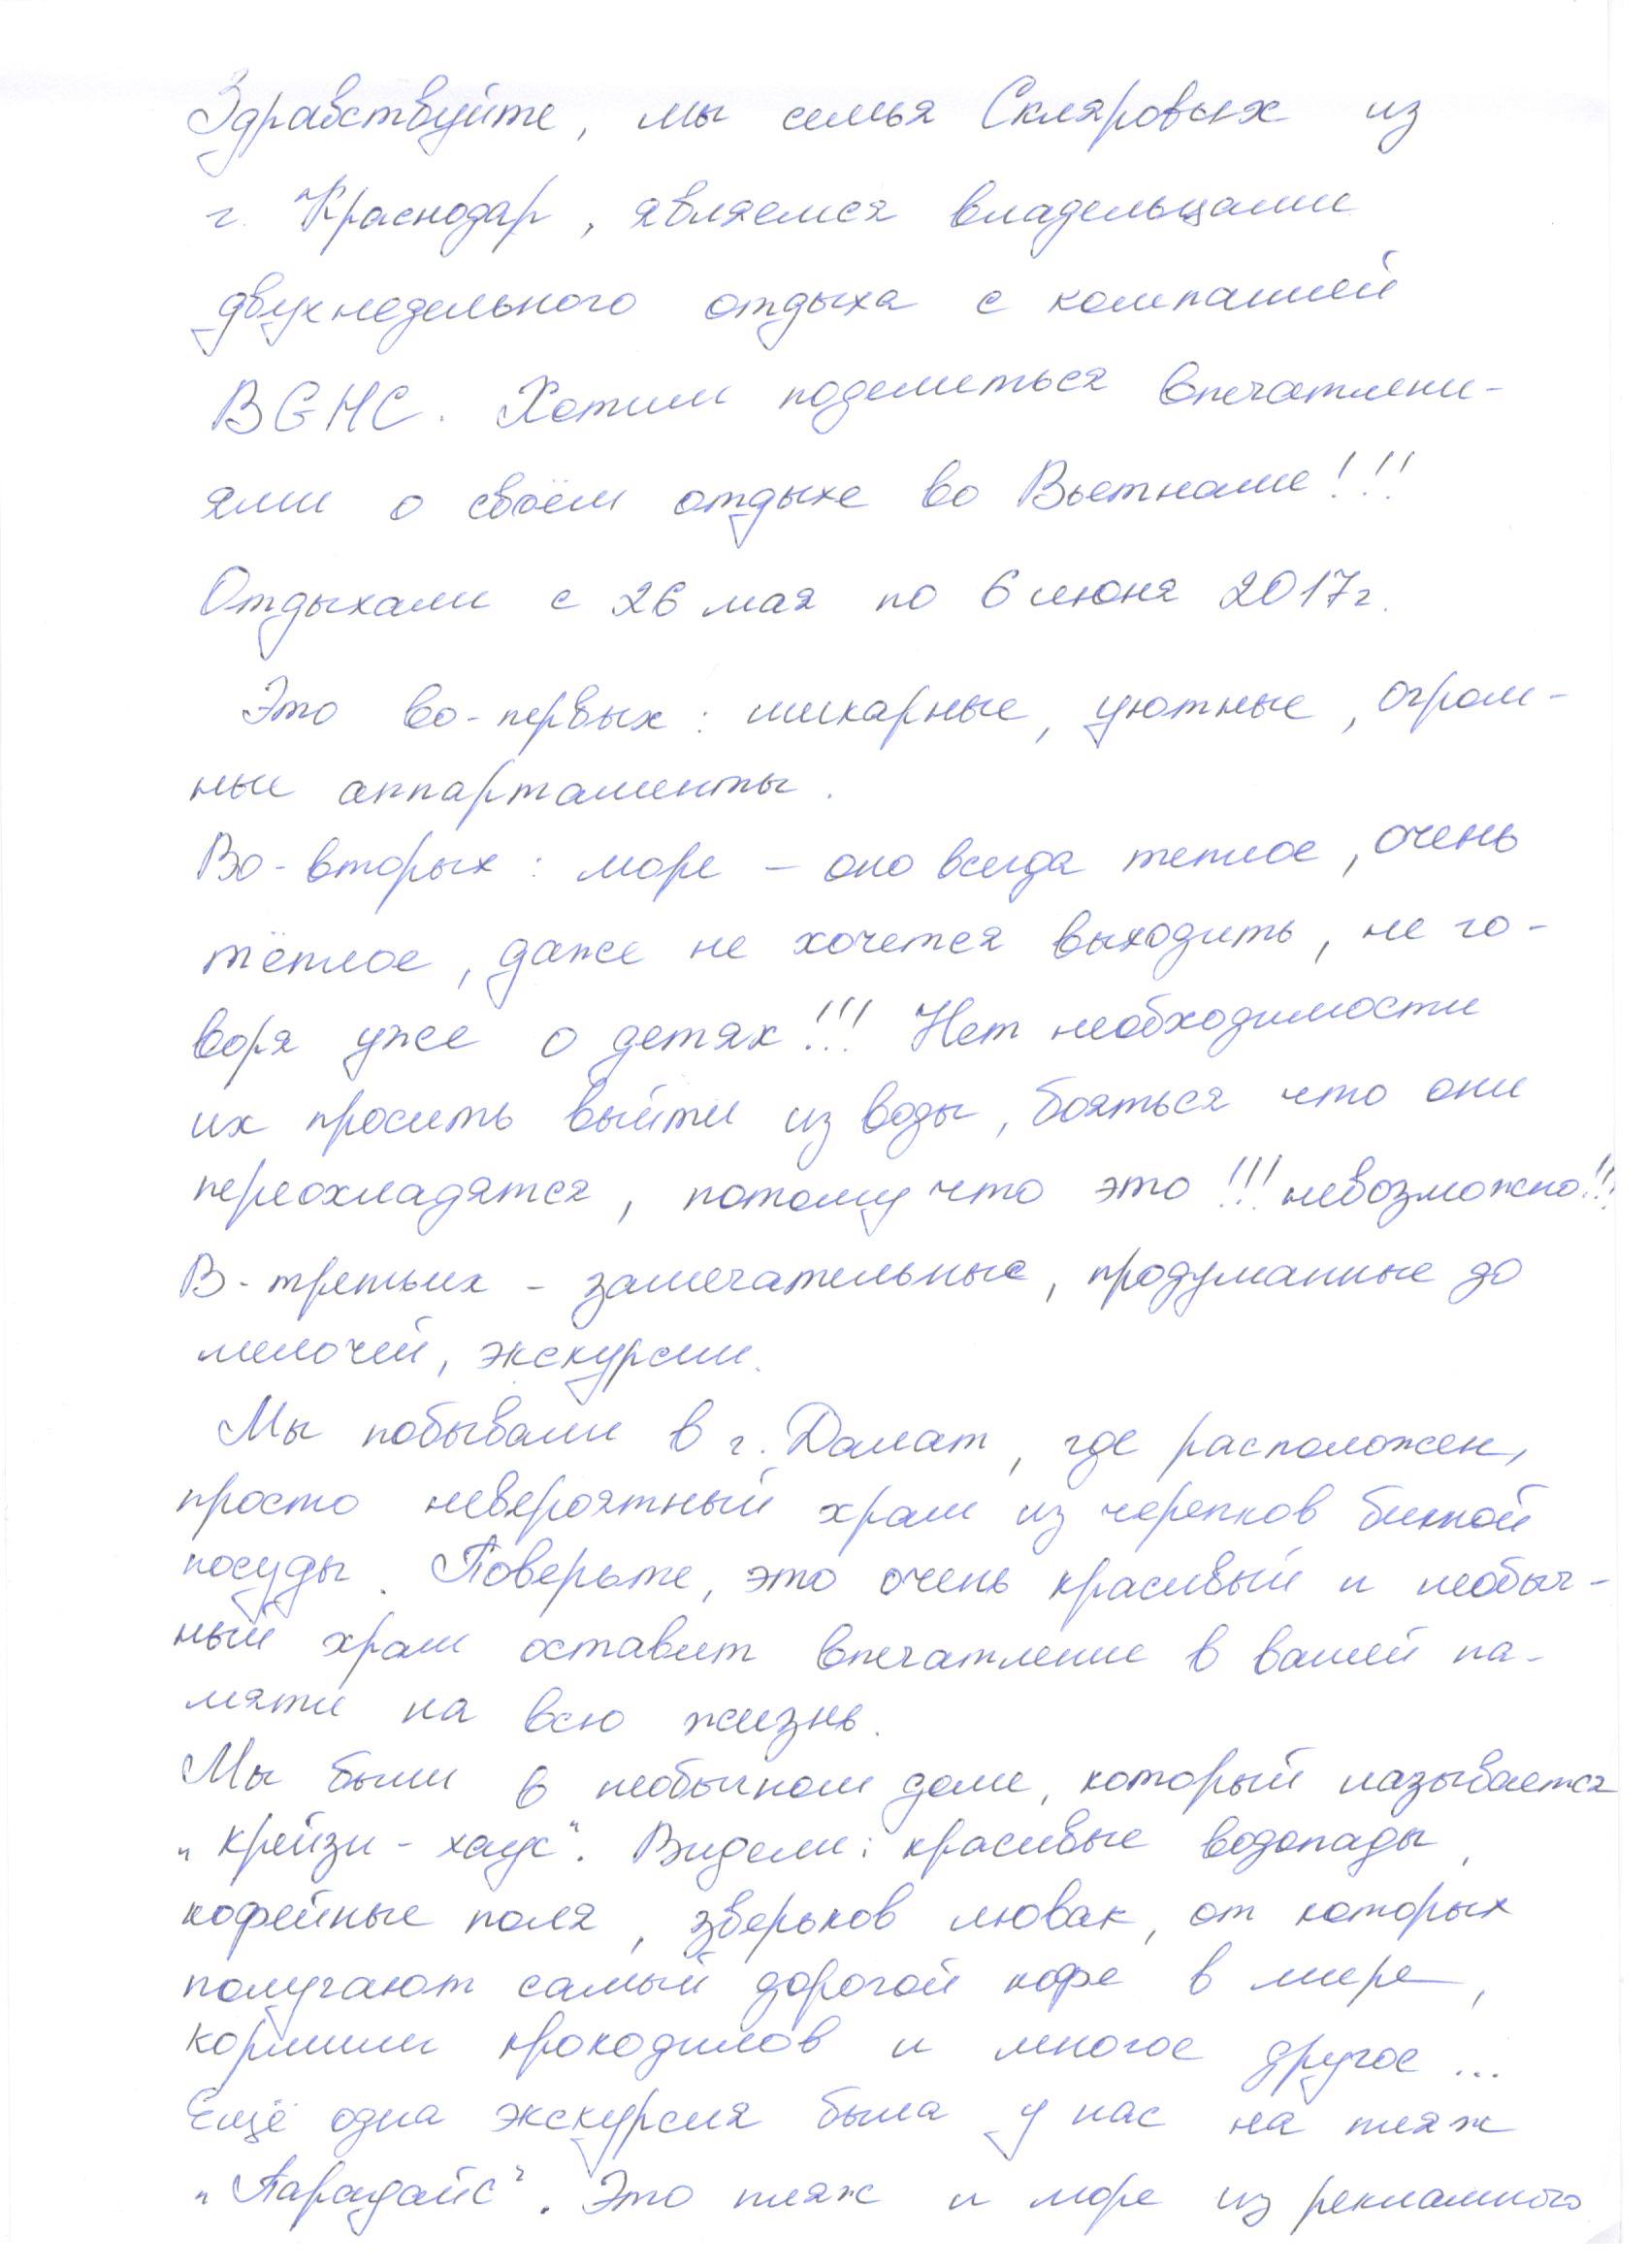 Здравствуйте, мы семья Скляровых из
г. Краснодар, являемся владельцами
двухнедельного отдыха с компанией
BGHC. Хотим поделиться впечатлени-
ями о своём отдыхе во Вьетнаме!!!
Отдыхали с 26 мая по 6 июня 2017г.
Это во-первых: шикарные, уютные, огром-
ные аппартаменты.
Во-вторых: море - оно всегда теплое, очень
тёплое, даже не хочется выходить, не го-
воря уже о детях!!! Нет необходимости
их просить выйти из воды, бояться что они
переохладятся, потому что это!!! невозможно!!!
В-третьих - замечательные, продуманные до
мелочей, экскурсии.
Мы побывали в г. Далат, где расположен,
просто невероятный храм из черепков битой
посуды. Поверьте, это очень красивый и необыч-
ный храм оставит впечатление в вашей па-
мяти на всю жизнь.
Мы были в необычном доме, который называется
„Крейзи-хаус“. Видели: красивые водопады,
кофейные поля, зверьков лювак, от которых
получают самый дорогой кофе в мире,
кормили крокодилов и многое другое...
Ещё одна экскурсия была у нас на пляж
„Парадайс“. Это пляж и море из рекламного